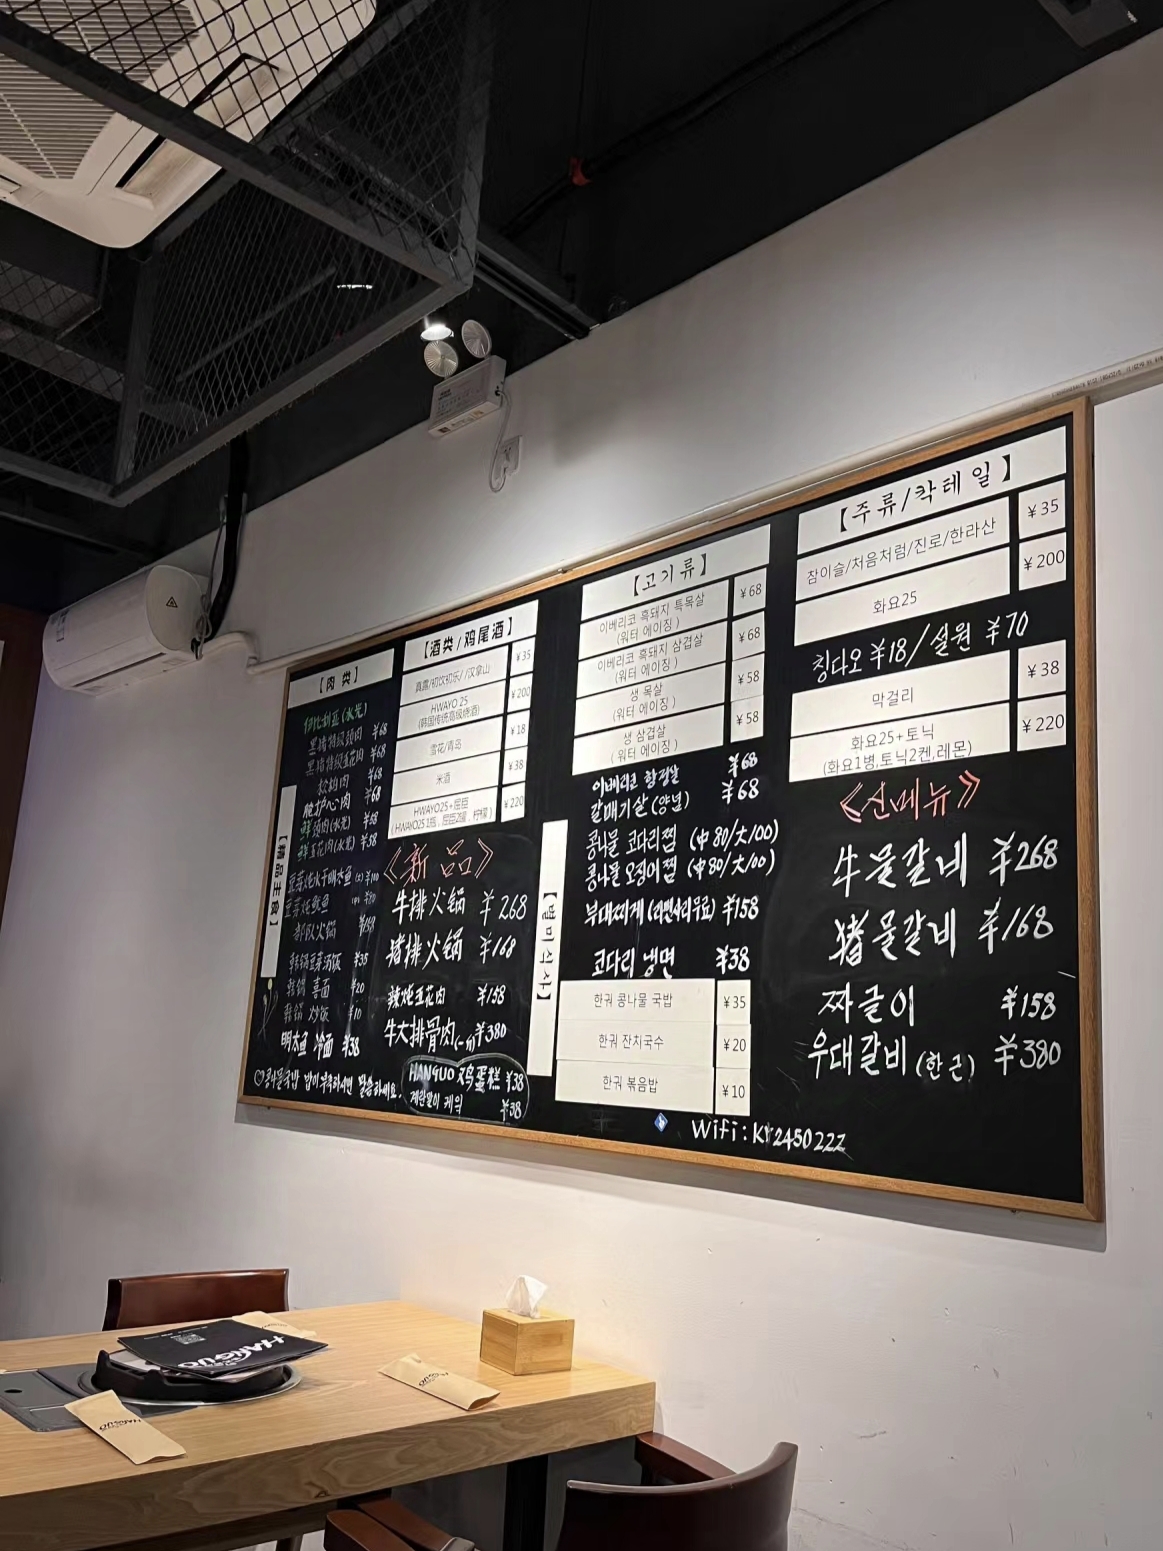 【肉类】
伊比利亚(水光)
黑猪特级颈肉 ¥68
黑猪特级五花肉 ¥68
¥68
¥68
鲜颈肉(水光) ¥58
鲜五花肉(水光) ¥58
【精品主食】
部队火锅 ¥158
韩锅豆芽汤饭 ¥35
韩锅喜面 ¥20
韩锅炒饭 ¥10
明太鱼 冷面 ¥38
♡콩나물국밥 밥이 부족하시면 말씀하세요.
【酒类/鸡尾酒】
真露/初饮初乐/ /汉拿山 ¥35
HWAYO 25
(韩国传统高级烧酒) ¥200
雪花/青岛 ¥18
米酒 ¥38
HWAYO25+屈臣
(HWAYO25 1瓶, 屈臣2罐, 柠檬) ¥220
《新品》
牛排火锅 ¥268
猪排火锅 ¥168
辣炖五花肉 ¥158
牛大排骨肉(一份) ¥380
HANGUO 鸡蛋糕 ¥38
계란말이 케익 ¥38
【고기류】
이베리코 흑돼지 특목살
(워터 에이징) ¥68
이베리코 흑돼지 삼겹살
(워터 에이징) ¥68
생 목살
(워터 에이징) ¥58
생 삼겹살
(워터 에이징) ¥58
이베리코 항정살 ¥68
갈매기살(양념) ¥68
【별미식사】
콩나물 코다리찜 (中80/大100)
콩나물 오징어찜 (中80/大100)
부대찌게(라면사리무료) ¥158
코다리 냉면 ¥38
한궈 콩나물 국밥 ¥35
한궈 잔치국수 ¥20
한궈 볶음밥 ¥10
Wifi: KY2450222
【주류/칵테일】
참이슬/처음처럼/진로/한라산 ¥35
화요25 ¥200
칭다오 ¥18/설원 ¥70
막걸리 ¥38
화요25+토닉
(화요1병,토닉2켄,레몬) ¥220
《신메뉴》
牛물갈비 ¥268
猪물갈비 ¥168
짜글이 ¥158
우대갈비(한근) ¥380
HANGUO
HANGUO